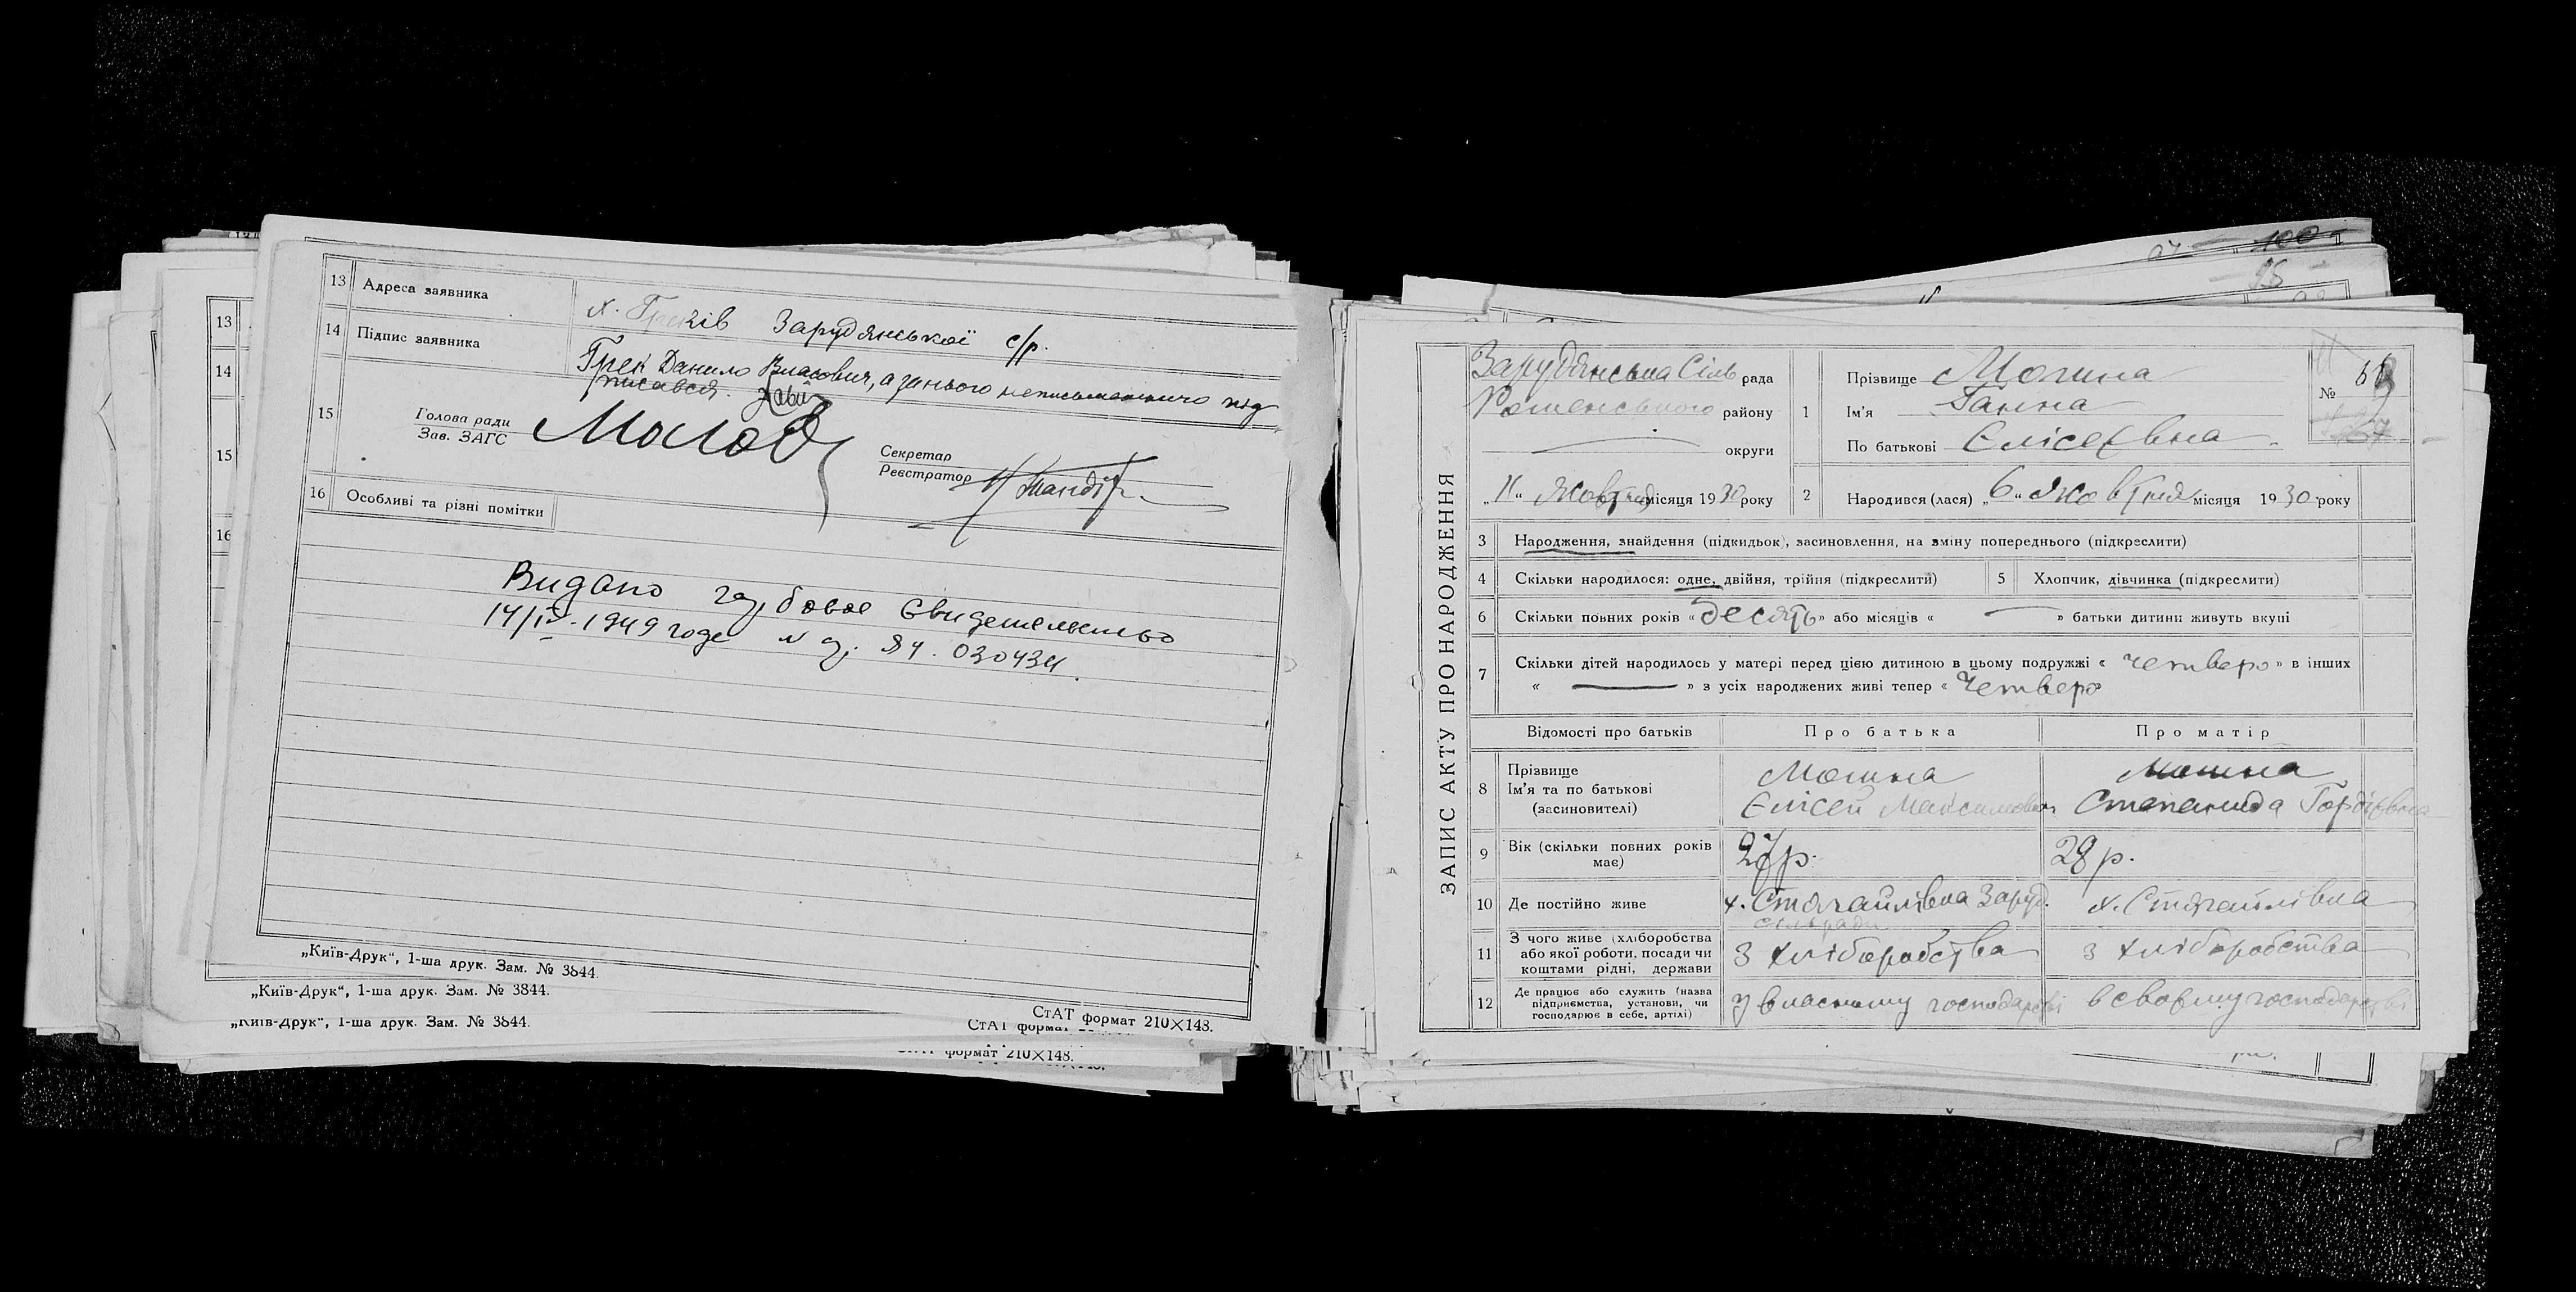 13 Адреса заявника х. Греків Зарудянської с/р.
14 Підпис заявника Грек Данило Власович, а за нього неписьменного під
писався.
15 Голова ради
Зав. ЗАГС
Секретар
Реєстратор
16 Особливі та різні помітки
Видано
свидетельство
14/IV-1949 годе 030434
„Київ-Друк“, 1-ша друк. Зам. № 3844.
СтАТ формат 210×148.
„Київ-Друк“, 1-ша друк. Зам. № 3844.
СтАТ формат
„Київ-Друк“, 1-ша друк. Зам. № 3844.
формат 210×148.
13
14
15
16
ЗАПИС АКТУ ПРО НАРОДЖЕННЯ
Зарудянська Сіль рада
Роменського району
округи
„11“ Жовтня місяця 1930 року
1 Прізвище Мошна
Ім'я Ганна
По батькові Єлісеївна
№
2 Народився (лася) „6“ Жовтня місяця 1930 року
3 Народження, знайдення (підкидьок), засиновлення, на зміну попереднього (підкреслити)
4 Скільки народилося: одне, двійня, трійня (підкреслити) 5 Хлопчик, дівчинка (підкреслити)
6 Скільки повних років «десять» або місяців « — » батьки дитини живуть вкупі
7 Скільки дітей народилось у матері перед цією дитиною в цьому подружжі « четверо » в інших
« — » з усіх народжених живі тепер « Четверо
Відомості про батьків Про батька Про матір
8 Прізвище Мошна Мошна
Ім'я та по батькові Єлісей Максимович Степанида Гордіївна
(засиновителі)
9 Вік (скільки повних років має) 27 р. 28 р.
10 Де постійно живе
сільради
11 З чого живе (хліборобства або якої роботи, посади чи коштами рідні, держави З хліборобства З хліборобства
12 Де працює або служить (назва підприємства, установи, чи господарює в себе, артілі) У власному господарстві в своєму господарстві